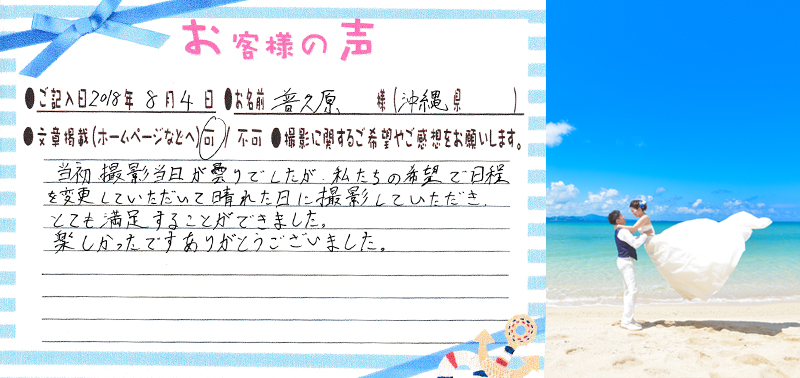 お客様の声
●ご記入日2018年 8月4日 ●お名前 普久原 様(沖縄県 )
●文章掲載(ホームページなどへ)可 / 不可 ●撮影に関するご希望やご感想をお願いします。
当初撮影当日が曇りでしたが、私たちの希望で日程
を変更していただいて晴れた日に撮影していただき、
とても満足することができました。
楽しかったですありがとうございました。